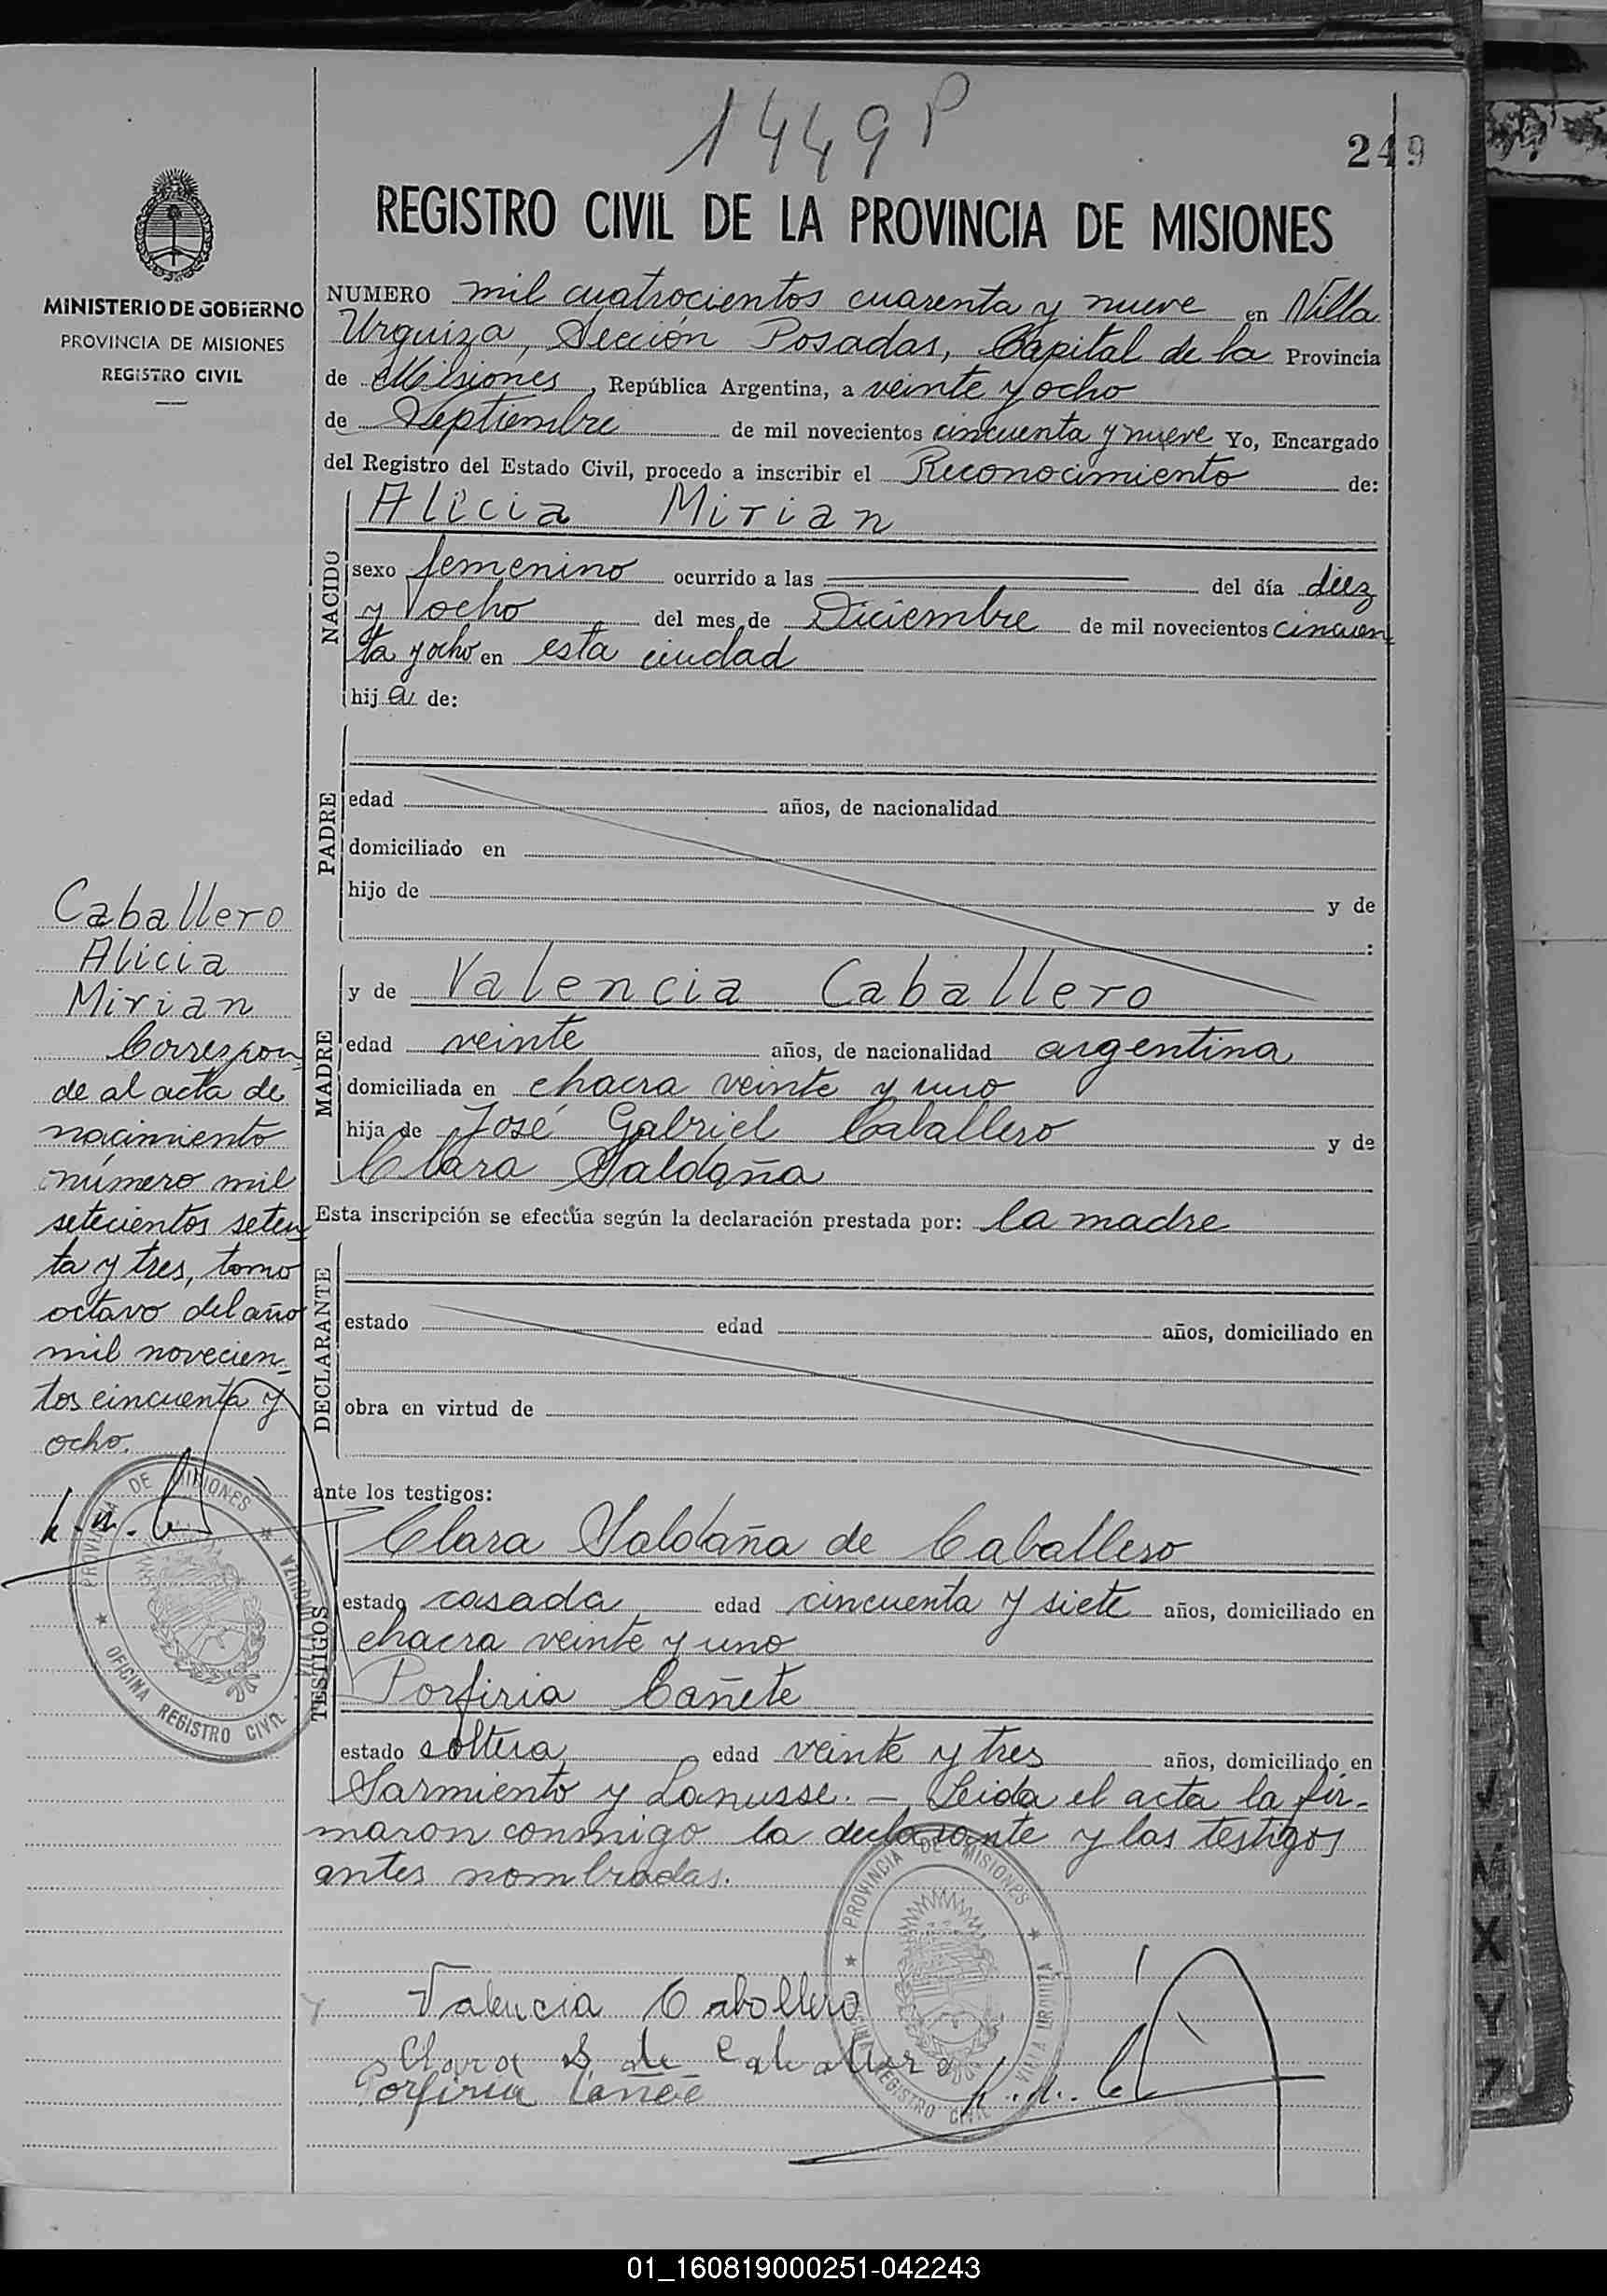 1449 P
249
REGISTRO CIVIL DE LA PROVINCIA DE MISIONES
MINISTERIO DE GOBIERNO
PROVINCIA DE MISIONES
REGISTRO CIVIL
NUMERO mil cuatrocientos cuarenta y nueve en Villa
Urquiza, Sección Posadas, Capital de la Provincia
de Misiones, República Argentina, a veinte y ocho
de Septiembre de mil novecientos cincuenta y nueve Yo, Encargado
del Registro del Estado Civil, procedo a inscribir el Reconocimiento de:
NACIDO
Alicia Mirian
sexo femenino ocurrido a las del día diez
y ocho del mes de Diciembre de mil novecientos cincuen
ta y ocho en esta ciudad
hija de:
PADRE
edad años, de nacionalidad
domiciliado en
hijo de y de
:
MADRE
y de Valencia Caballero
edad veinte años, de nacionalidad argentina
domiciliada en chacra veinte y uno
hija de José Gabriel Caballero y de
Clara Saldaña
Esta inscripción se efectúa según la declaración prestada por: la madre
DECLARANTE
estado edad años, domiciliado en
obra en virtud de
ante los testigos:
TESTIGOS
Clara Saldaña de Caballero
estado casada edad cincuenta y siete años, domiciliado en
chacra veinte y uno
Porfiria Cañete
estado soltera edad veinte y tres años, domiciliado en
Sarmiento y Lanusse. - Leida el acta la fir-
maron conmigo la declarante y las testigos
antes nombradas.
Caballero
Alicia
Mirian
Correspon
de al acta de
nacimiento
número mil
setecientos seten
ta y tres, tomo
octavo del año
mil novecien
tos cincuenta y
ocho.
PROVINCIA DE MISIONES
VILLA URQUIZA
OFICINA REGISTRO CIVIL
Valencia Caballero
Clara S de Caballero
Porfiria Cañete
PROVINCIA DE MISIONES
VILLA URQUIZA
OFICINA REGISTRO CIVIL
01_160819000251-042243